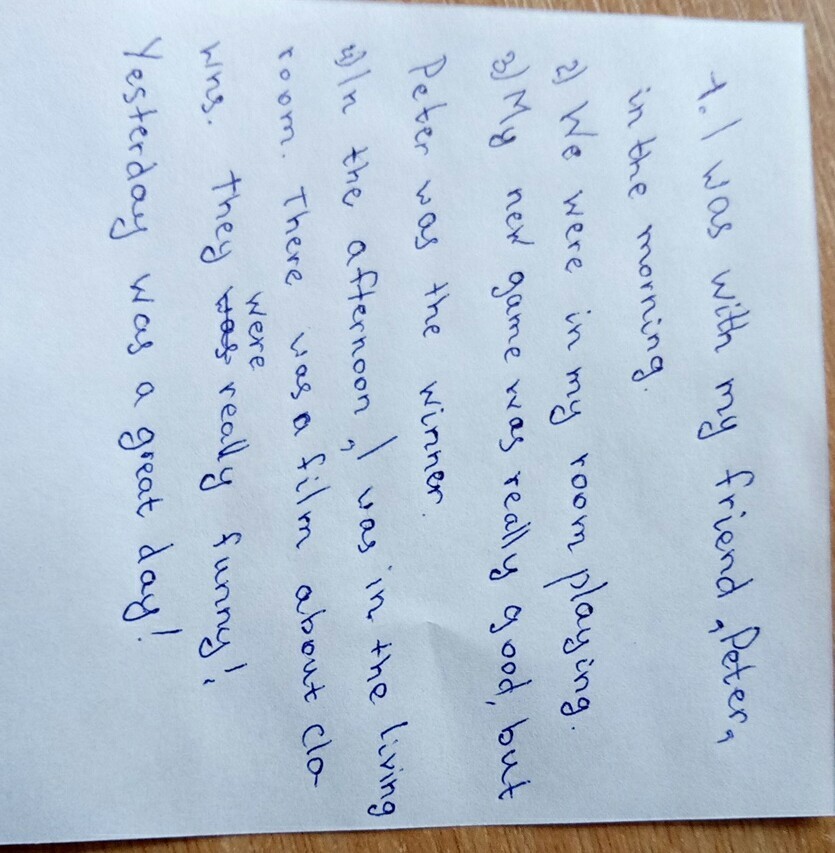 1. I was with my friend, Peter,
in the morning.
2) We were in my room playing.
3) My new game was really good, but
Peter was the winner.
4) In the afternoon, I was in the living
room. There was a film about clo
wns. They was were really funny!
Yesterday was a great day!